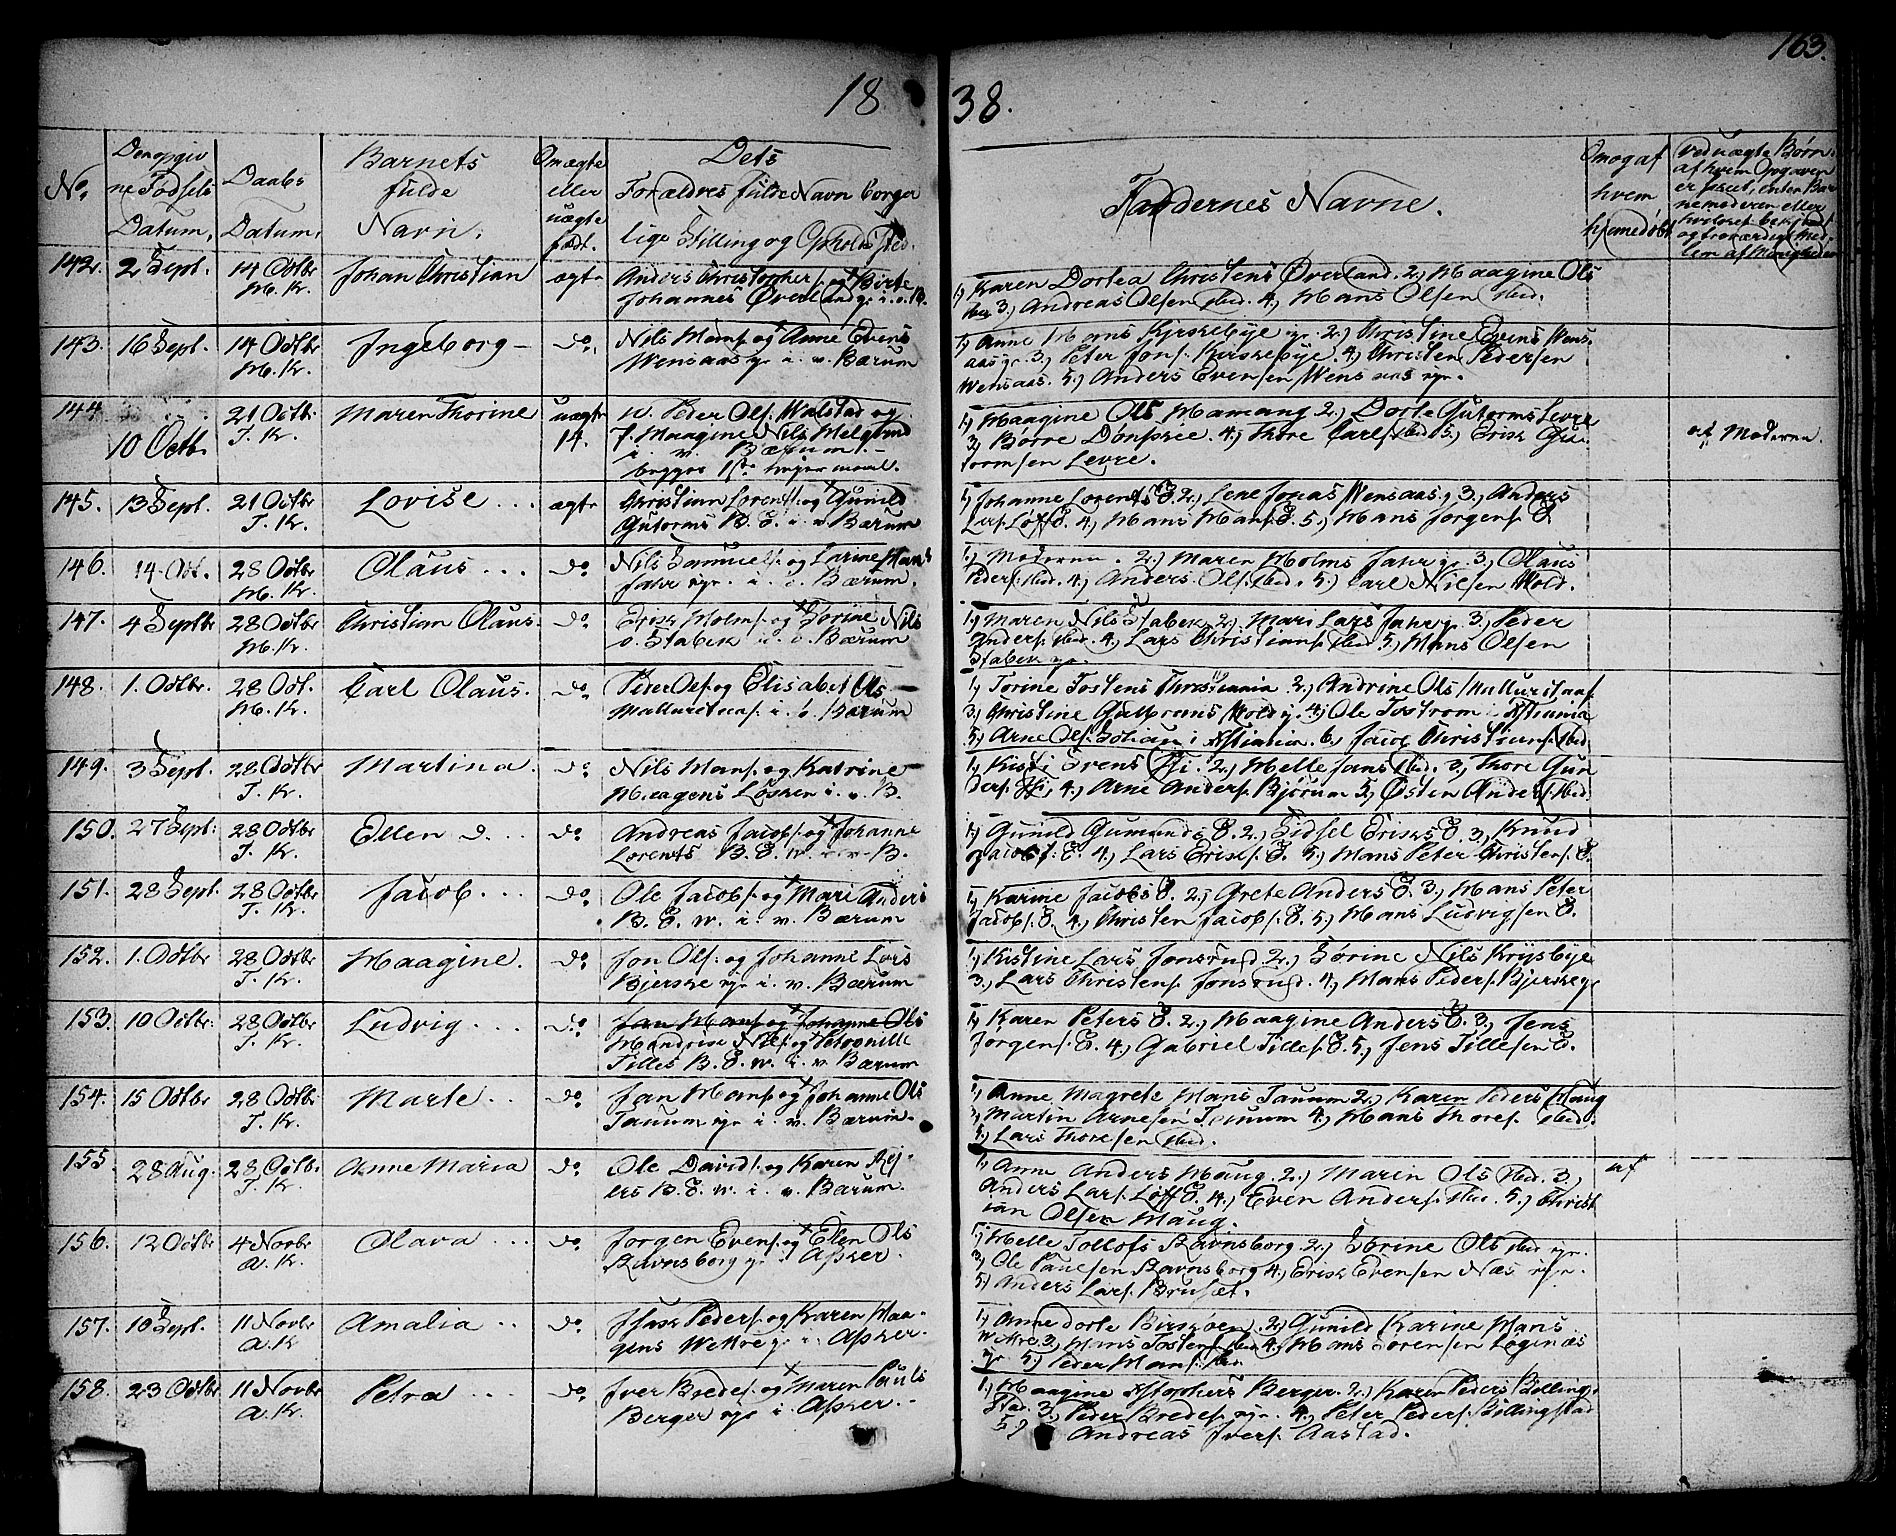 163.
18 38.
No.
Den opgiv
ne Fødsels
Datum.
Daabs
Datum.
Barnets
fulde
Navn.
Omægte
eller
uægte
født.
Dets
Forældres fulde Navn borger
lige Stilling og Opholds Sted
Faddernes Navne.
Omog af
hvem
hjemedøbt
ved uægte Børn
af hvem Opgaven
er skeet, enten Bar
nemoderen eller
142. 2 Sept. 14 Octbr H. K. Johan Christian ægte
Anders Christopher og Birte
Johannes Øverland
1, Karen Dortea Christens Øverland. 2, Haagine Ols
ibid. 3, Andreas Olsen ibid. 4, Hans Olsen ibid.
143. 16 Sept. 14 Octbr H. K. Ingeborg do
Nils Hans. og Anne Evens
Wensaas gr i. v. Bærum
1, Anne Hans Kirskebye gr. 2, Christine Evens Wens-
aas gr. 3, Peter Jons. Kirskebye. 4, Christen Pedersen
Wensaas. 5, Anders Evensen Wensaas gr.
144. 10 Octb. 21 Octb. T. K. Maren Thorine uægte 14.
U. Peder Ols. Walstad og
F. Haagine Nils Helgrud
i. v. Bærum.
begges 1ste leiermaal.
1, Haagine Ols Hamang 2, Dorte Gutorms Levre
3, Børre Dønskie. 4, Thore Carls. ibid 5, Erisk Gu-
tormsen Levre.
af Moderen.
145. 13 Sept. 21 Octbr T. K. Lovise ægte
Christian Lorents. og Gunild
Gutorms B. E. i. v. Bærum
1, Johanne Lorents E. 2, Lene Jonas Wensaas g 3, Anders
Lars. Løkk E. 4, Hans Hans. E. 5, Hans Jorgens. E
146. 14. Oct. 28 Octbr H. K. Olaus do
Nils Samuels. og Larine Hans
Jahr gr. i. v. Bærum.
1, Moderen. 2, Maren Holms Jahr gr. 3, Olaus
Peders. ibid. 4, Anders Ols. ibid. 5, Carl Nilsen Wold.
147. 4 Septbr 28 Octbr H. K. Christian Olaus. do
Erisk Holms. og Sørine Nils
Stabek i. v. Bærum
1, Maren Nils Stabek 2, Mari Lars Jahr g. 3, Peder
Anders. ibid. 4, Lars Christians. ibid 5, Hans Olsen
Stabek gr.
148. 1. Octbr. 28 Oct. H. K. Carl Olaus. do
Peter Ols. og Elisabet Ols
i. v. Bærum
1, Torine Tostens Christiania 2, Andrine Ols
3, Christine Gulbrans Wold g. 4, Ole Tostrom i Xstiania
5, Arne Ols. i Xstiania. 6, Jacob Christians. ibid.
149. 3 Sept. 28 Octbr T. K. Martina. do
Nils Hans. og Katrine
Haagens Løsken i. v. B.
1, Kisti Srens Fji. 2, Helle Jans ibid. 3, Thore Gun
ders. Fji, 4, Arne Anders. Bjørum 5, Østen Anders. ibid.
150. 27 Sept. 28 Octbr T. K. Ellen do
Andreas Jacobs. og Johanne
Lorents B. E. w. i. v. B.
1, Gunild Gumunds E. 2, Sidsel Erisks E. 3, Knud
Jacobs. E. 4, Lars Erisks. E. 5, Hans Peter Christens. E.
151. 28 Sept. 28 Octbr T. K. Jacob. do
Ole Jacobs. og Mari Anders
B. E. w. i. v. Bærum
1, Karine Jacobs E. 2, Grete Anders E. 3, Hans Peter
Jacobs. E. 4, Christen Jacobs. E. 5, Hans Ludvigsen E.
152. 1. Octbr 28 Octbr T. K. Haagine. do
Jon Ols. og Johanne Lars
Bjerske gr i. v. Bærum
1, Kistine Lars Jonsrud 2, Sørine Nils Krysbye
3, Lars Christens. Jonsrud. 4, Hans Peders. Bjerske gr
153. 10 Octbr. 28 Octbr T. K. Ludvig do
Jan Hans. og Johanne Ols
Hendrisk Nils. og Petronille
Tilles B. E. w. i. v. Bærum
1, Karen Peters E. 2, Haagine Anders E. 3, Jens
Jorgens. E. 4, Gabriel Tilles. E. 5, Jens Tillesen E.
154. 15 Octbr 28 Octbr T. K. Marte do
Jan Hans. og Johanne Ols
Tanum gr i. v. Bærum.
1, Anne Magrete Hans Tanum 2, Karen Peders Haug
3, Martin Arnesen Tanum 4, Hans Thores. ibid.
5, Lars Thoresen ibid.
155. 28 Aug. 28 Octb. T. K. Anne Maria do
Ole Davids. og Karen Rej-
ers B. E. w. i. v. Bærum.
1, Anne Anders Haug 2, Maren Ols ibid. 3,
Anders Lars. Løkk E. 4, Even Anders. ibid. 5, Christ
ian Olsen Haug.
af
156. 12 Octbr 4 Novbr A. K. Olava do
Jorgen Evens. og Elen Ols
Ravnsborg gr i Asker.
1, Helle Tollofs Ravnsborg 2, Sørine Ols ibid gr.
3, Ole Paulsen Ravnsborg 4, Erisk Evensen Næs gr.
5, Anders Lars. Bruset.
157. 10 Sept. 11 Novbr A. K. Amalia do
Isask Peders. og Karen Haa-
gens Wettre g i Asker.
1, Anne Dorte Birskøen. 2, Gunild Karine Hans
Wttre. 3, Hans Tostens. ibid 4, Hans Sørensen Løgenæs
gr. 5, Peder Hans. ibid
158. 23 Octbr 11 Novbr A. K. Petra do
Iver Bredes. og Maren Pauls
Berger gr i. Asker.
1, Haagine Xstophers Berger. 2, Karen Peders Billing-
stad. 3, Peder Bredes. gr. 4, Peter Peders. Billingstad
5, Andreas Ivers. Aastad.